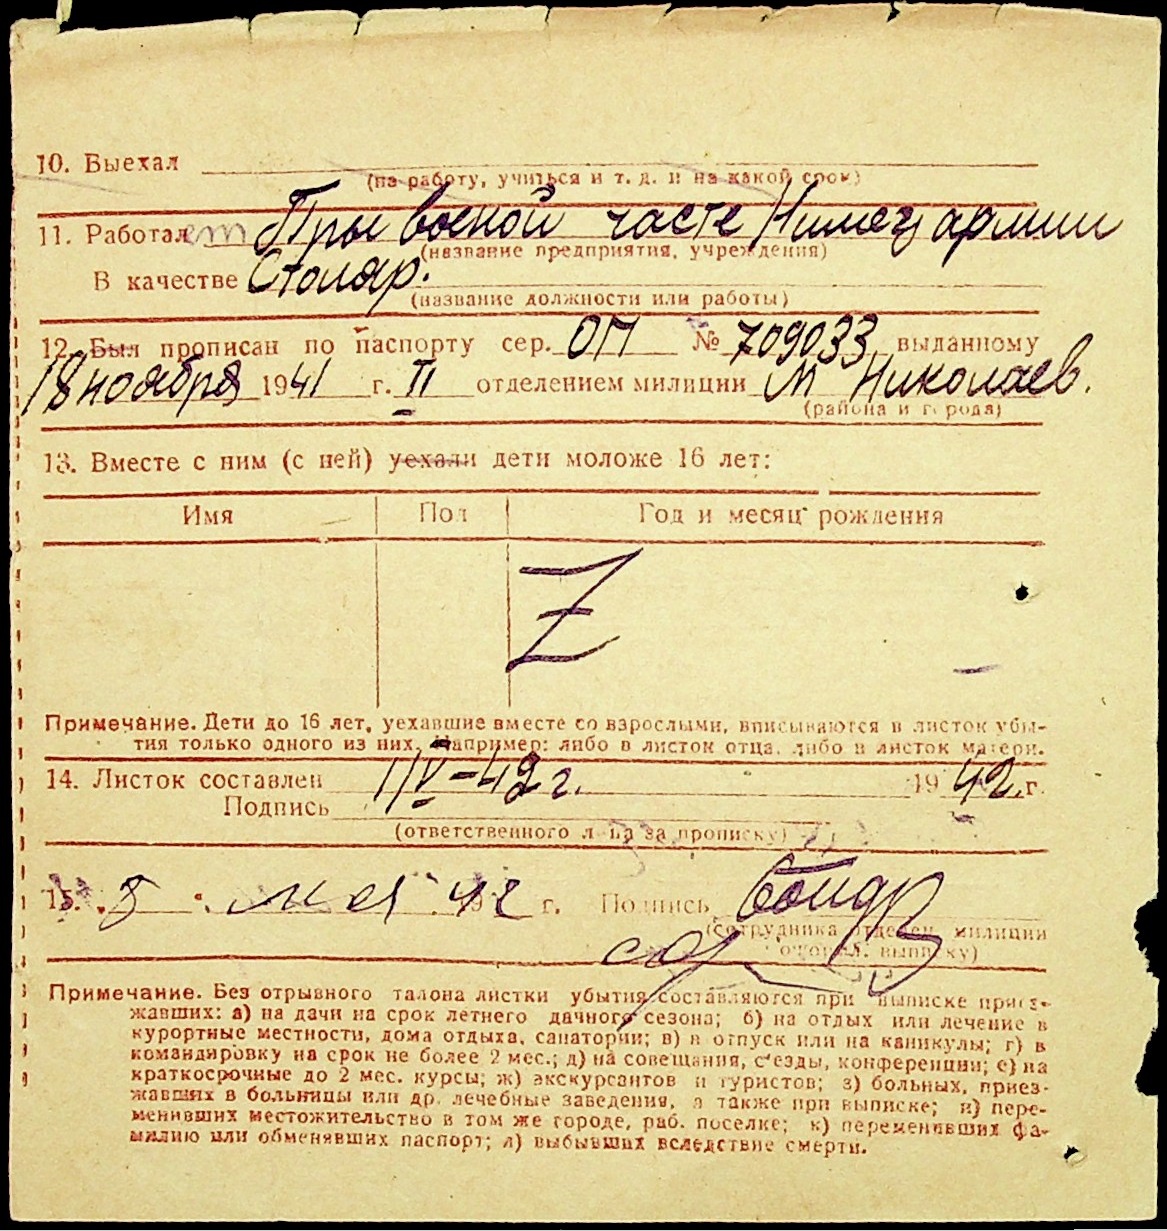 10. Выехал
(на работу, учиться и т. д. и на какой срок)
11. Работает При военой часте Нимец армии
(название предприятия, учреждения)
В качестве Столяр.
(название должности или работы)
12. Был прописан по паспорту сер. ОП № 709033, выданному
18 ноября 1941 г. II отделением милиции М Николаев.
(района и города)
13. Вместе с ним (с ней) уехали дети моложе 16 лет:
Имя Пол Год и месяц рождения
Z
Примечание. Дети до 16 лет, уехавшие вместе со взрослыми, вписываются в листок убы-
тия только одного из них. Например: либо в листок отца, либо в листок матери.
14. Листок составлен 1/V-42 г. 1942 г.
Подпись
(ответственного лица за прописку)
15. 5 мая 42 г. Подпись
(сотрудника отделен. милиции
выписку)
Примечание. Без отрывного талона листки убытия составляются при выписке приез-
жавших: а) на дачи на срок летнего дачного сезона; б) на отдых или лечение в
курортные местности, дома отдыха, санатории; в) в отпуск или на каникулы; г) в
командировку на срок не более 2 мес.; д) на совещания, съезды, конференции; е) на
краткосрочные до 2 мес. курсы; ж) экскурсантов и туристов; з) больных, приез-
жавших в больницы или др. лечебные заведения, а также при выписке; и) пере-
менивших местожительство в том же городе, раб. поселке; к) переменивших фа-
милию или обменявших паспорт; л) выбывших вследствие смерти.